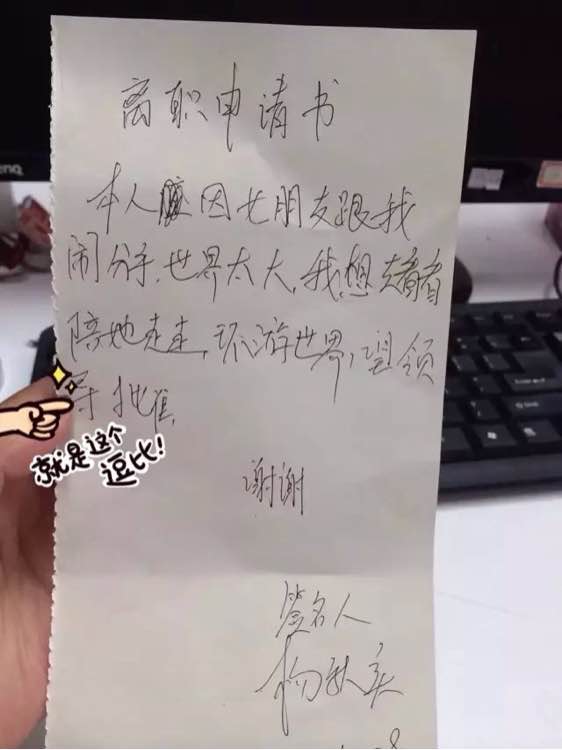 离职申请书
本人因女朋友跟我
闹分手,世界太大,我想去看看
陪她走走,环游世界,望领
导批准,
就是这个
逗比!
谢谢
签名人
杨